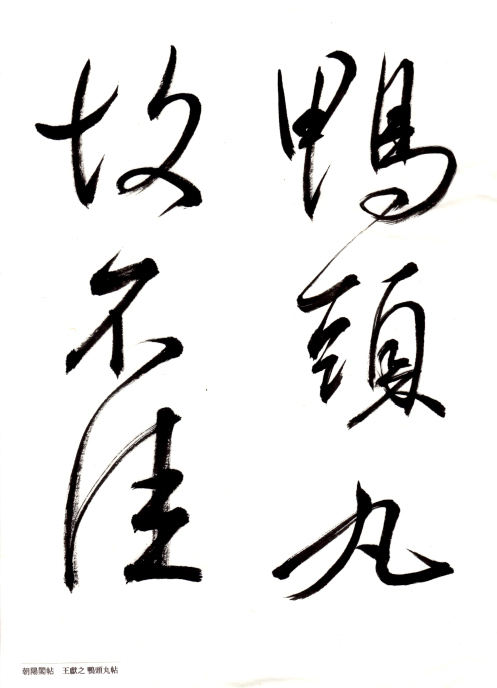 鴨頭丸
故不佳
朝陽閣帖 王獻之 鴨頭丸帖